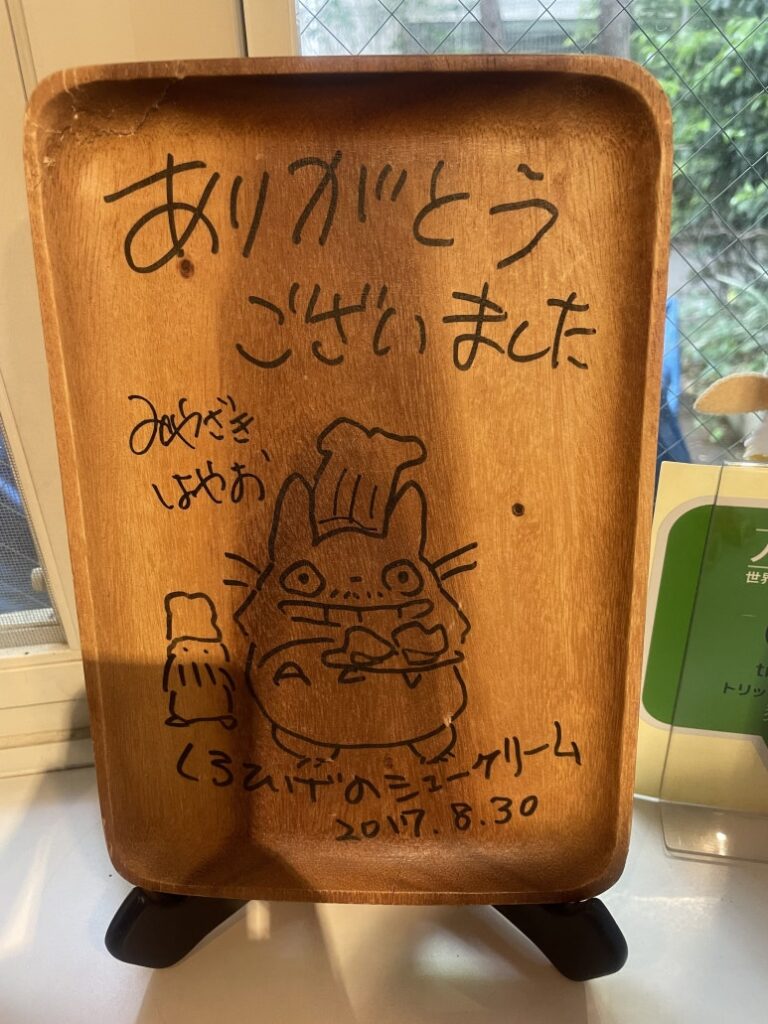 ありがとう
ございました
みやざき
はやお
くろひげのシュークリーム
2017.8.30
世界
トリッ